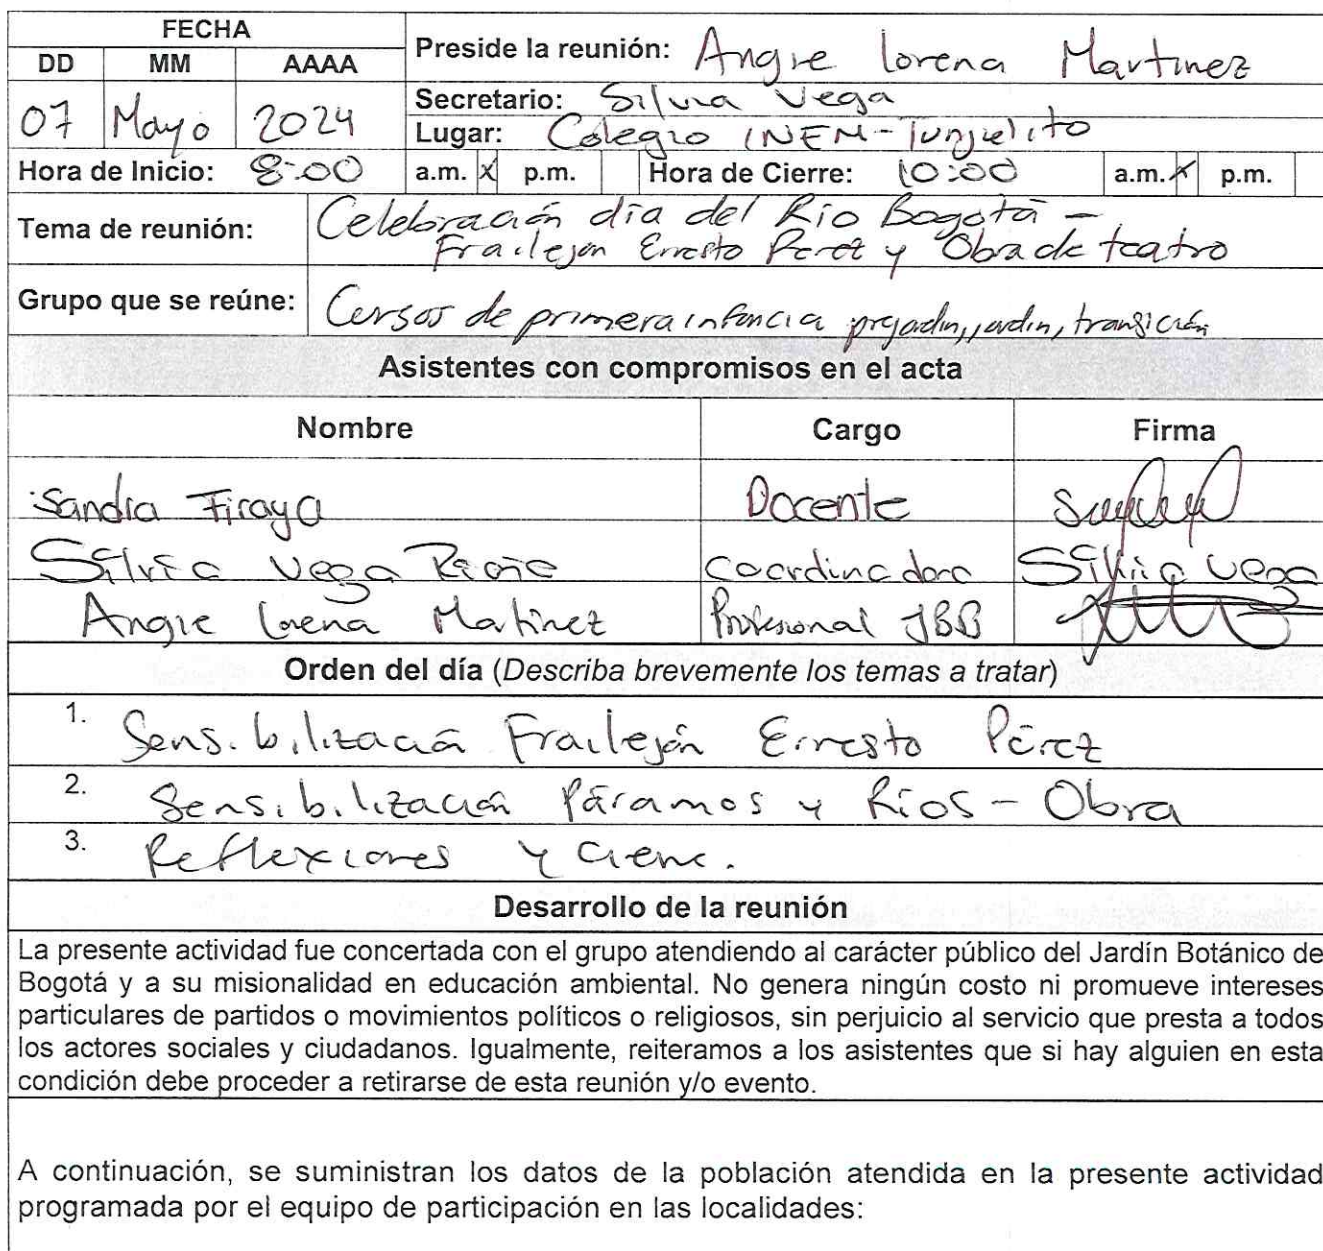 FECHA
DD MM AAAA
07 Mayo 2024
Preside la reunión: Angie Lorena Martinez
Secretario: Silvia Vega
Lugar: Colegio INEM-Tunjuelito
Hora de Inicio: 8:00 a.m. x p.m. Hora de Cierre: 10:00 a.m. x p.m.
Tema de reunión: Celebración día del Río Bogotá -
Frailejón Ernesto Perez y Obra de teatro
Grupo que se reúne: Cursos de primera infancia prejardin, jardin, transición
Asistentes con compromisos en el acta
Nombre Cargo Firma
Sandra Firaya Docente
Silvia Vega Coordinadora Silvia Vega
Angie Lorena Martinez Profesional JBB
Orden del día (Describa brevemente los temas a tratar)
1. Sensibilización Frailejón Ernesto Pérez
2. Sensibilización Páramos y Ríos - Obra
3. Reflexiones y
Desarrollo de la reunión
La presente actividad fue concertada con el grupo atendiendo al carácter público del Jardín Botánico de
Bogotá y a su misionalidad en educación ambiental. No genera ningún costo ni promueve intereses
particulares de partidos o movimientos políticos o religiosos, sin perjuicio al servicio que presta a todos
los actores sociales y ciudadanos. Igualmente, reiteramos a los asistentes que si hay alguien en esta
condición debe proceder a retirarse de esta reunión y/o evento.
A continuación, se suministran los datos de la población atendida en la presente actividad
programada por el equipo de participación en las localidades: